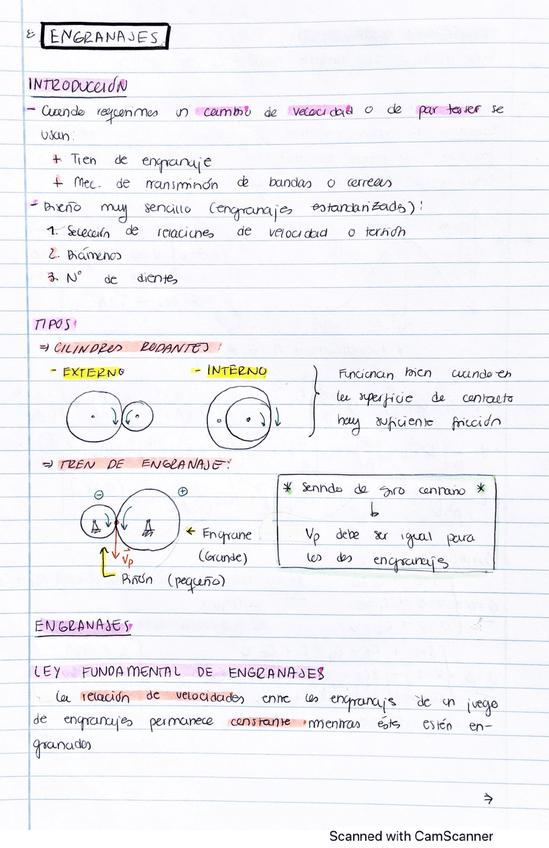 8. ENGRANAJES
INTRODUCCIÓN
- Cuando requerimos un cambio de velocidad o de par torsor se
usan:
+ Tren de engranaje
+ Mec. de transmisión de bandas o correas
- Diseño muy sencillo (engranajes estandarizados):
1. Selección de relaciones de velocidad o torsión
2. Diámetros
3. Nº de dientes
TIPOS:
⇒ CILINDROS RODANTES:
- EXTERNO
- INTERNO
Funcionan bien cuando en
la superficie de contacto
hay suficiente fricción
⇒ TREN DE ENGRANAJE:
⊖ ⊕
Vp
← Engrane
(Grande)
Piñón (pequeño)
* Sentido de giro contrario *
Vp debe ser igual para
los dos engranajes
ENGRANAJES
LEY FUNDAMENTAL DE ENGRANAJES
La relación de velocidades entre los engranajes de un juego
de engranajes permanece constante mientras éstos estén en-
granados
⇒
Scanned with CamScanner